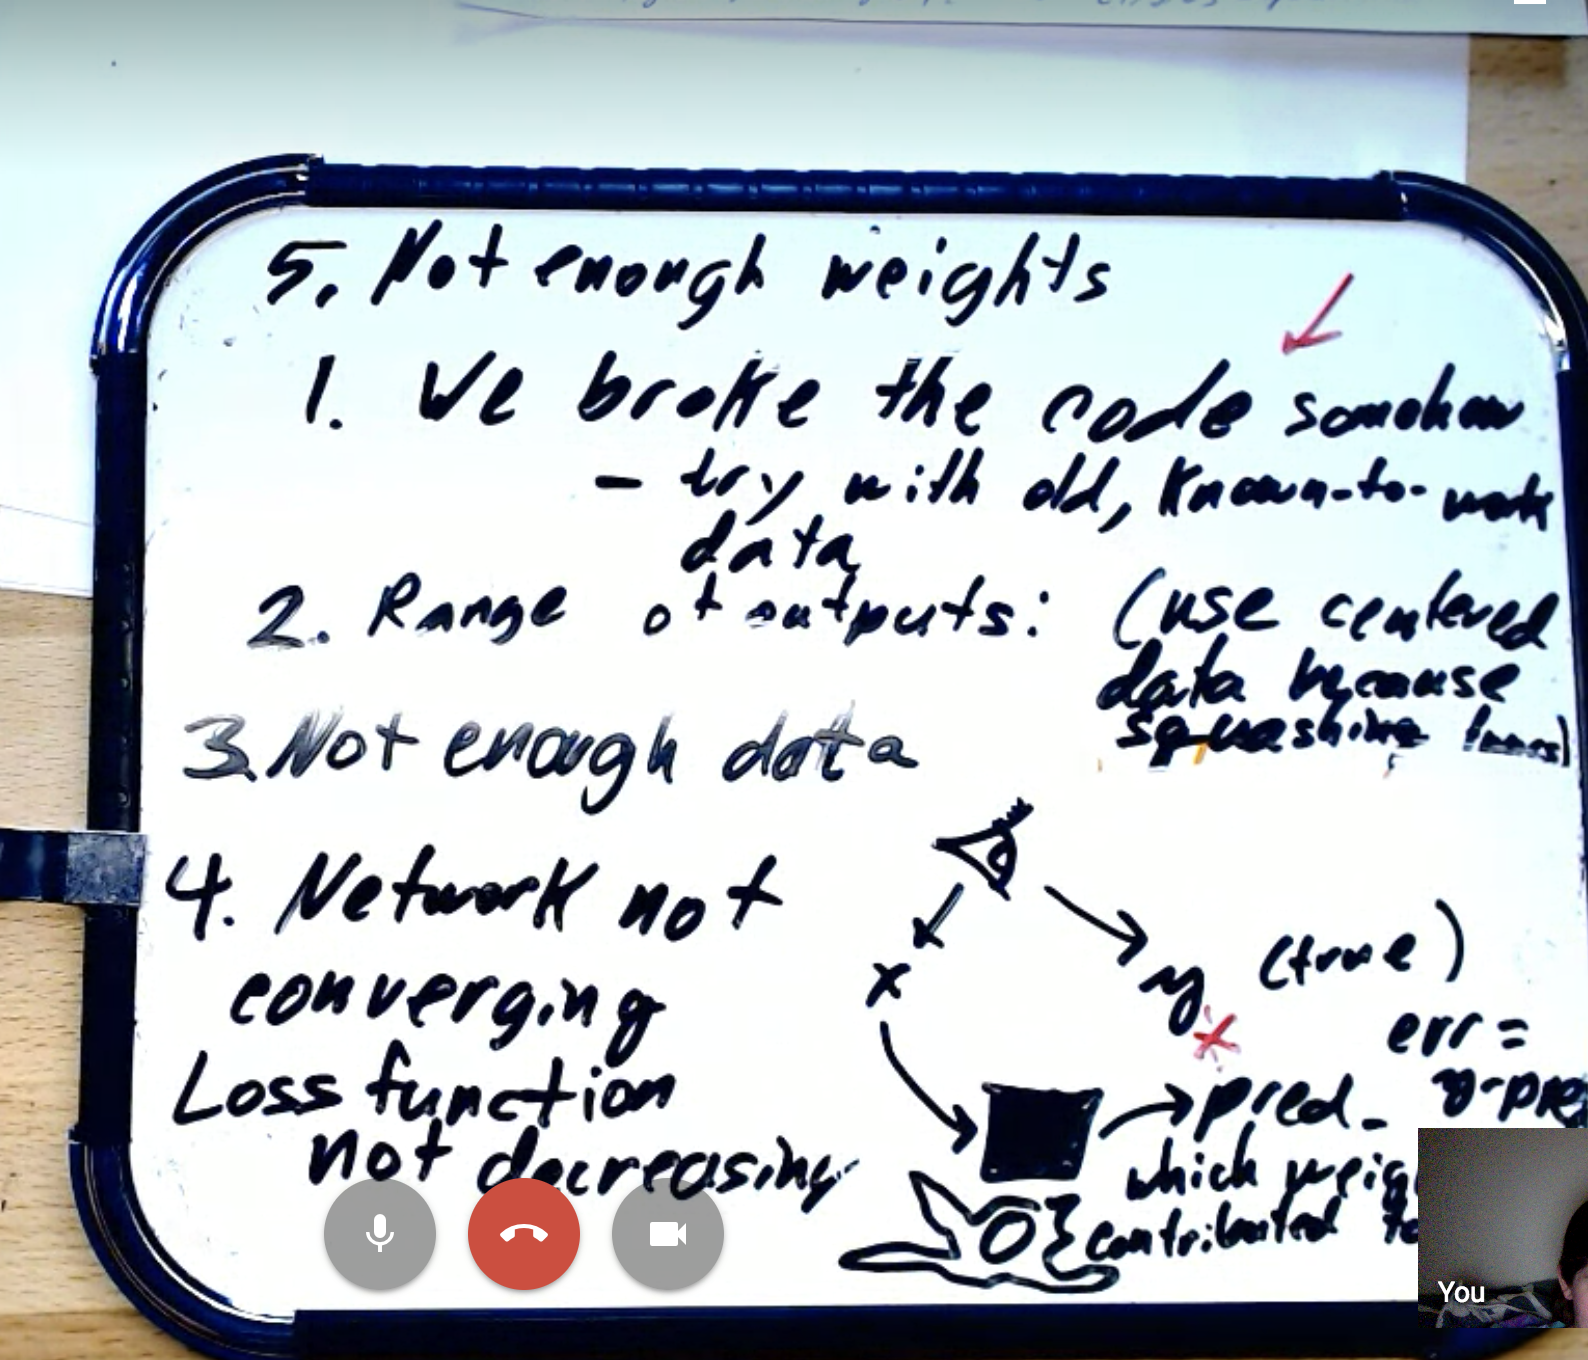 5. Not enough weights
1. We broke the code somehow
- try with old, known-to-work
data
2. Range of outputs: (use centered
data because
squashing
3. Not enough data
4. Network not
converging
Loss function
not decreasing
x
y (true)
err =
pred.
y-pre
which weig
contributed to
You